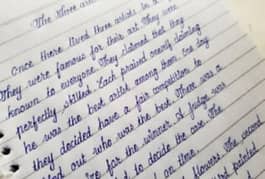 The three
Once there lived three artists in a
They were famous for their art. They were
known to everyone. They claimed that they
perfectly skilled. Each praised oneself claiming
he was the best artist among them. One day
they decided have a fair competition to
out who was the best. There was a
for the winner. A judge was
to decide the case. The
on time.
flowers. The second
painted